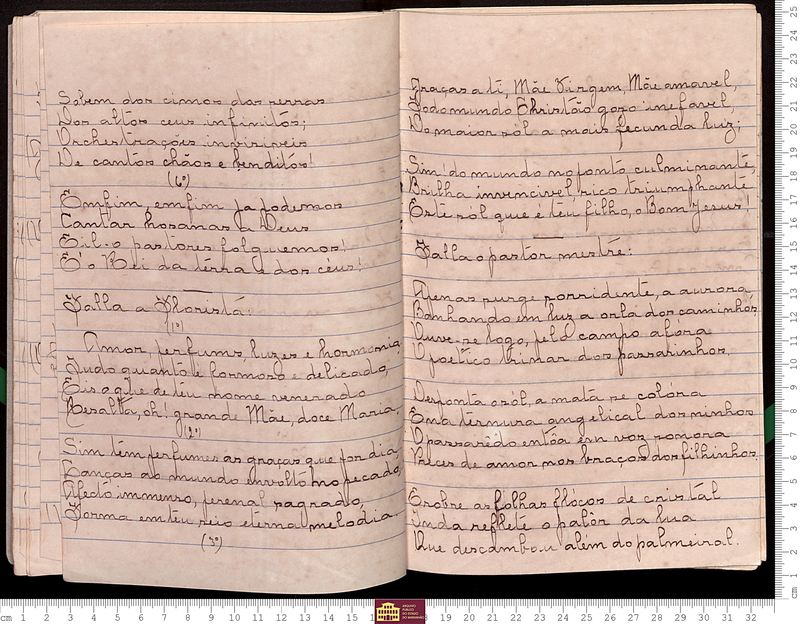 Sobem dos cimos das serras
Dos altos ceus infinitos;
Orchestrações invisiveis
De cantos chãos e benditos!
(6º)
Emfim, emfim ja podemos
Cantar hosanas a Deus
Eil-o pastores folguemos!
E'o Rei da terra e dos céus!
Falla a Florista:
(1º)
Amor, perfume, luzes e harmonia,
Tudo quanto é formoso e delicado,
Eis aqui de teu nome venerado
Resalta, oh! grande Mãe, doce Maria.
(2º)
Sim tem perfumes as graças que por dia
Lanças ao mundo envolto no pecado,
Afecto immenso, perenal sagrado,
Forma em teu seio eterna melodia.
(3º)
Graças a ti, Mãe Virgem, Mãe amavel,
Todo mundo Christão gozo inefavel,
Do maior sol a mais fecunda luz;
Sim! do mundo no ponto culminante,
Brilha invencivel rico triumphante
Este sol que e teu filho, o Bom Jesus!
Falla o pastor mestre:
Apenas surge sorridente, a aurora
Banhando em luz a orla dos caminhos,
Ouve-se logo, pelo campo afóra
O poetico trinar dos passarinhos.
Desponta o sol, a mata se colóra
E na ternura angelical dos ninhos
O passaredo entôa em voz sonora
Preces de amor nos braços dos filhinhos.
E sobre as folhas flócos de cristal
Inda reflete o palôr da lua
Que descambou além do palmeiral.
cm 1 2 3 4 5 6 7 8 9 10 11 12 13 14 15
ARQUIVO PÚBLICO DO ESTADO DO MARANHÃO
19 20 21 22 23 24 25 26 27 28 29 30 31 32
cm 1 2 3 4 5 6 7 8 9 10 11 12 13 14 15 16 17 18 19 20 21 22 23 24 25